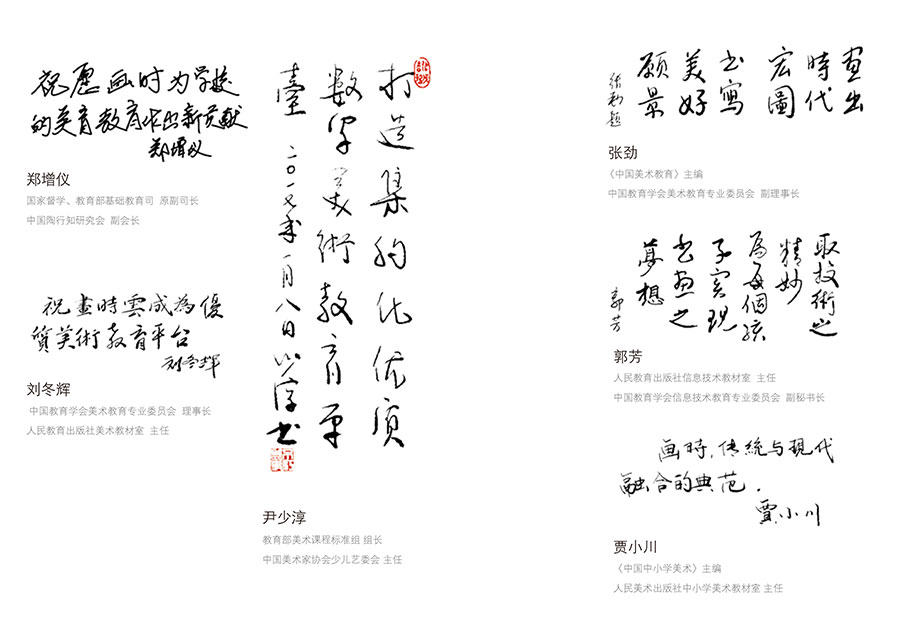 祝愿画时为学校
的美育教育作出新贡献
郑增仪
郑增仪
国家督学、教育部基础教育司 原副司长
中国陶行知研究会 副会长
祝畫時雲成為優
質美術教育平台
刘冬辉
刘冬辉
中国教育学会美术教育专业委员会 理事长
人民教育出版社美术教材室 主任
打造集约化优质
数字美術教育平
臺 二〇一七年一月八日 少淳书
尹少淳
教育部美术课程标准组 组长
中国美术家协会少儿艺委会 主任
畫出
時代
宏圖
书寫
美好
願景
张劲题
张劲
《中国美术教育》主编
中国教育学会美术教育专业委员会 副理事长
取技術之
精妙
為每個孩
子实现
书画之
夢想
郭芳
郭芳
人民教育出版社信息技术教材室 主任
中国教育学会信息技术教育专业委员会 副秘书长
画時,传統与現代
融合的典范.
贾小川
贾小川
《中国中小学美术》主编
人民美术出版社中小学美术教材室 主任